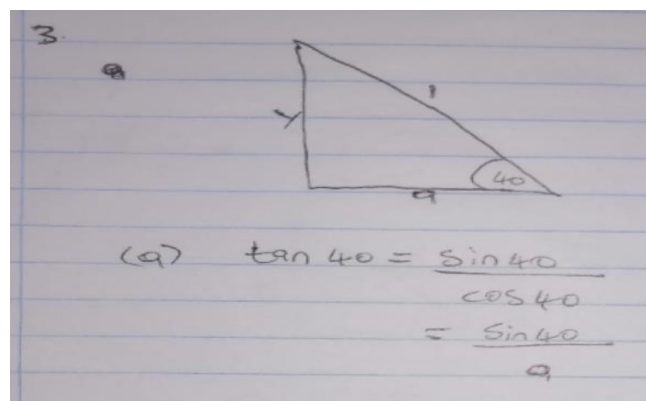 3.
1
y
40
a
(a) tan 40 = sin 40
cos 40
= sin 40
a